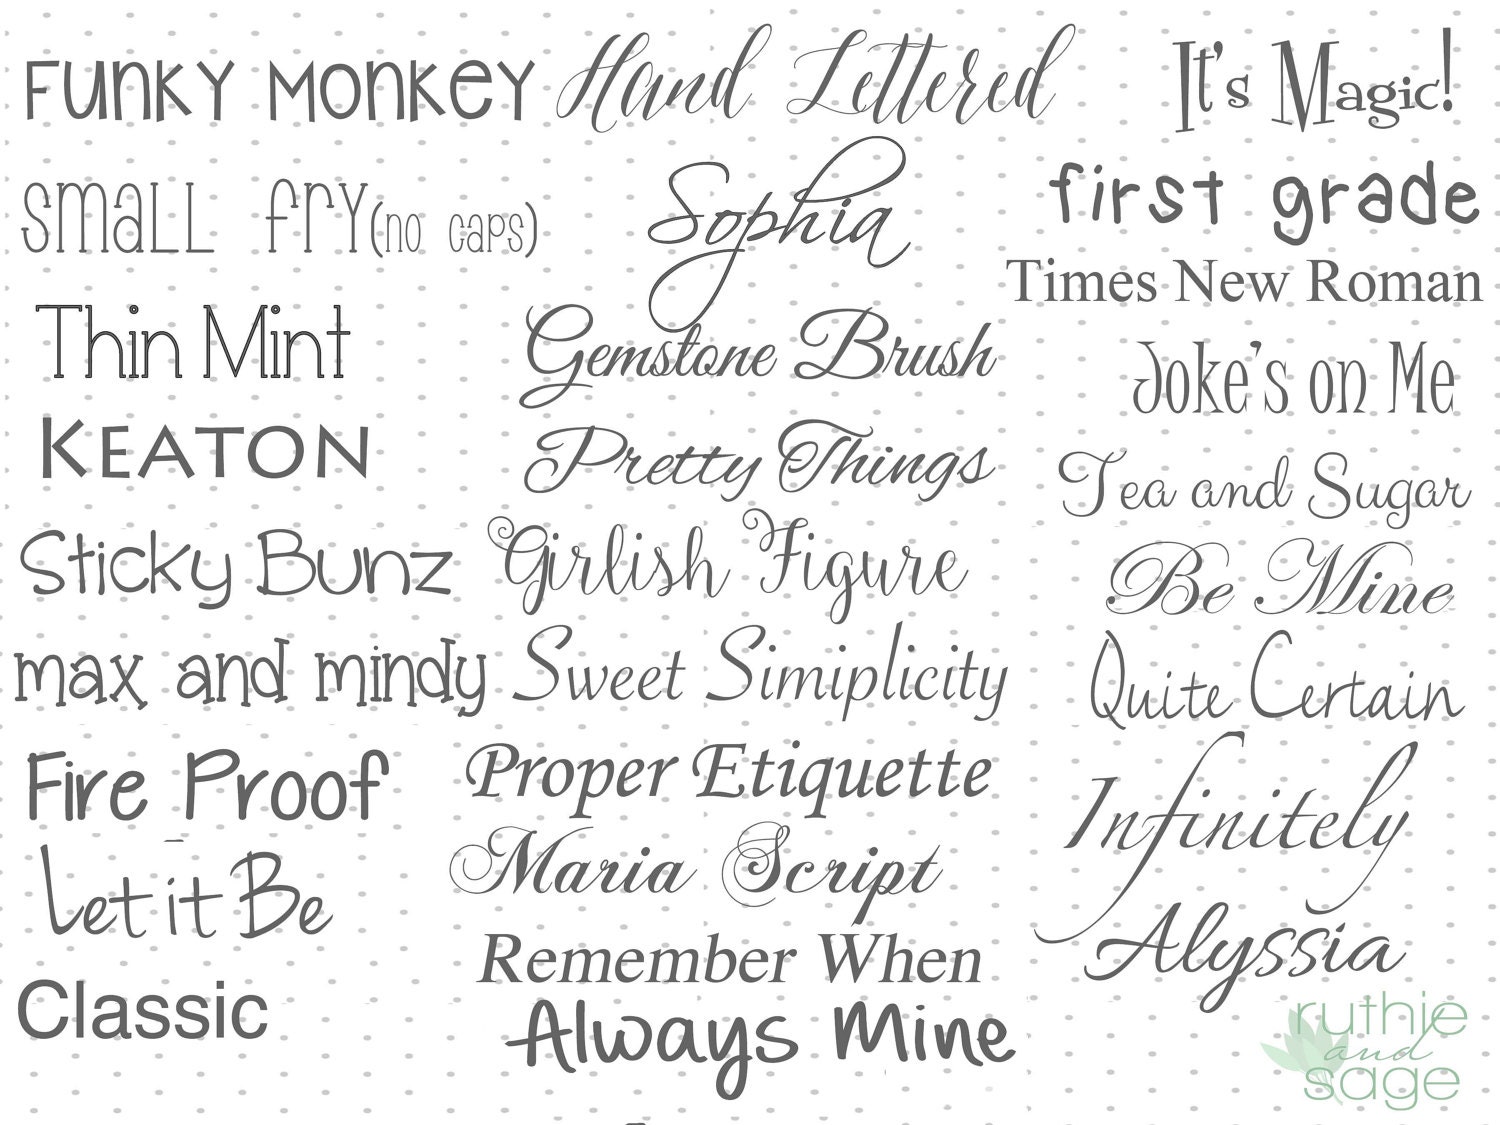 Funky Monkey
small fry(no caps)
Thin Mint
Keaton
Sticky Bunz
max and mindy
Fire Proof
Let it Be
Classic
Hand Lettered
Sophia
Gemstone Brush
Pretty Things
Girlish Figure
Sweet Simiplicity
Proper Etiquette
Maria Script
Remember When
Always Mine
It's Magic!
first grade
Times New Roman
Joke's on Me
Tea and Sugar
Be Mine
Quite Certain
Infinitely
Alyssia
ruthie
and
sage